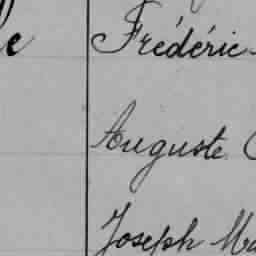 Frédéric
Auguste
Joseph